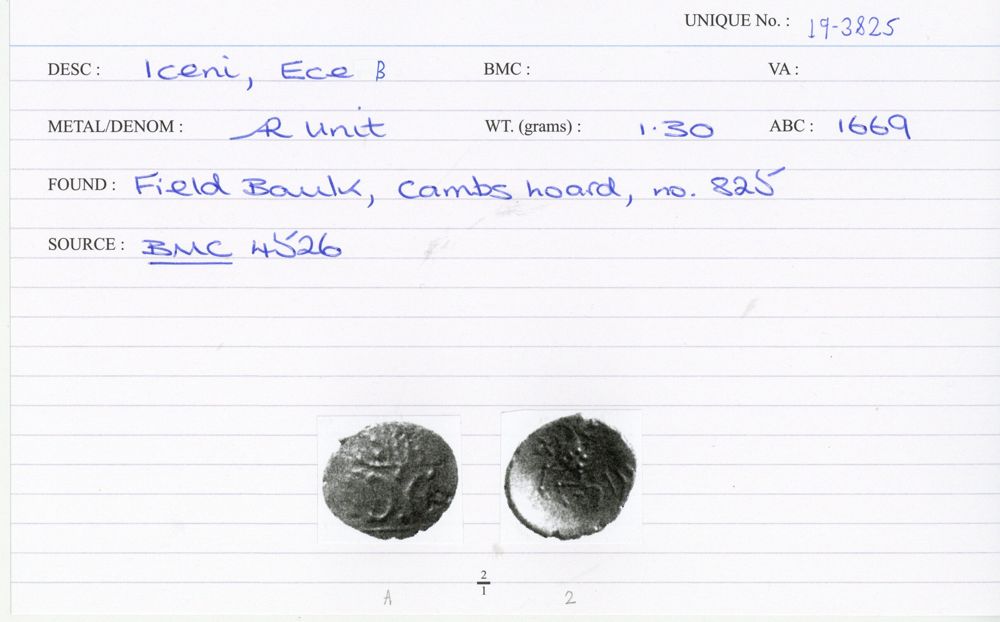 UNIQUE No. : 19-3825
DESC : Iceni, Ece B BMC : VA :
METAL/DENOM : AR Unit WT. (grams) : 1.30 ABC : 1669
FOUND : Field Baulk, Cambs hoard, no. 825
SOURCE : BMC 4526
2
1
A 2